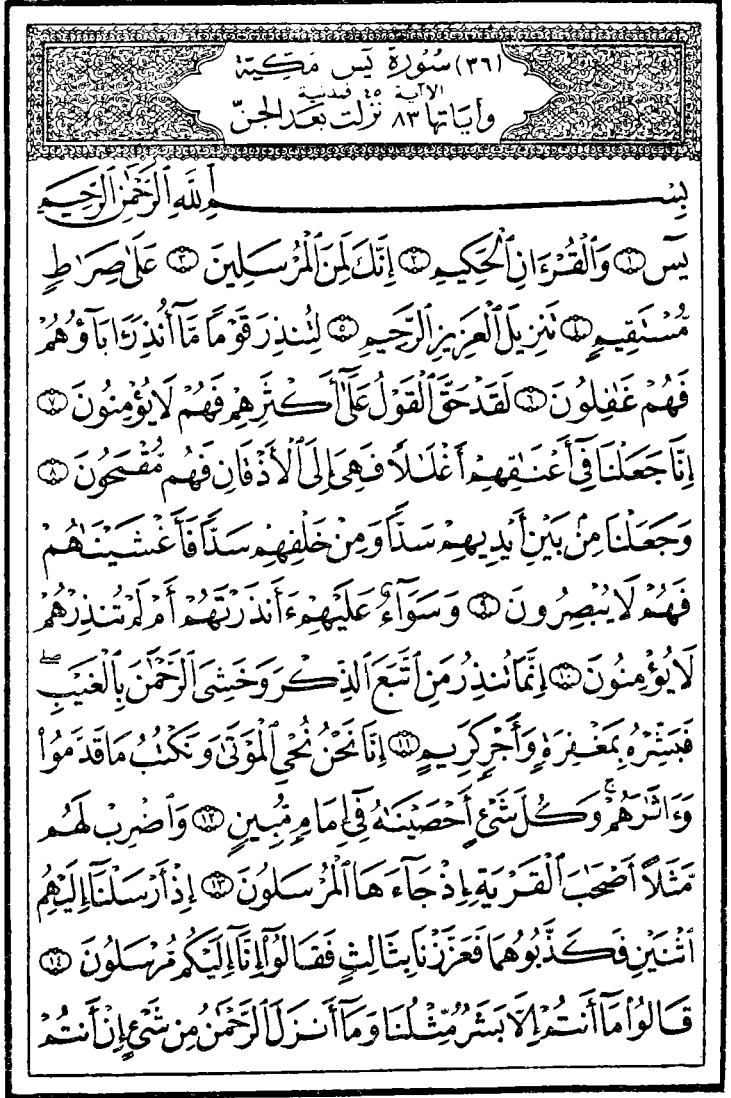 (٣٦) سُورَة يسٓ مَكِّيَّة
الآية ٤٥ فمدنية
وَآيَاتُهَا ٨٣ نَزَلَتْ بَعْدَ الجِنِّ
بِسْمِ ٱللَّهِ ٱلرَّحْمَٰنِ ٱلرَّحِيمِ
يسٓ ۝١ وَٱلْقُرْءَانِ ٱلْحَكِيمِ ۝٢ إِنَّكَ لَمِنَ ٱلْمُرْسَلِينَ ۝٣ عَلَىٰ صِرَٰطٍ
مُّسْتَقِيمٍ ۝٤ تَنزِيلَ ٱلْعَزِيزِ ٱلرَّحِيمِ ۝٥ لِتُنذِرَ قَوْمًا مَّآ أُنذِرَ ءَابَآؤُهُمْ
فَهُمْ غَٰفِلُونَ ۝٦ لَقَدْ حَقَّ ٱلْقَوْلُ عَلَىٰٓ أَكْثَرِهِمْ فَهُمْ لَا يُؤْمِنُونَ ۝٧
إِنَّا جَعَلْنَا فِىٓ أَعْنَٰقِهِمْ أَغْلَٰلًا فَهِىَ إِلَى ٱلْأَذْقَانِ فَهُم مُّقْمَحُونَ ۝٨
وَجَعَلْنَا مِنۢ بَيْنِ أَيْدِيهِمْ سَدًّا وَمِنْ خَلْفِهِمْ سَدًّا فَأَغْشَيْنَٰهُمْ
فَهُمْ لَا يُبْصِرُونَ ۝٩ وَسَوَآءٌ عَلَيْهِمْ ءَأَنذَرْتَهُمْ أَمْ لَمْ تُنذِرْهُمْ
لَا يُؤْمِنُونَ ۝١٠ إِنَّمَا تُنذِرُ مَنِ ٱتَّبَعَ ٱلذِّكْرَ وَخَشِىَ ٱلرَّحْمَٰنَ بِٱلْغَيْبِ ۖ
فَبَشِّرْهُ بِمَغْفِرَةٍ وَأَجْرٍ كَرِيمٍ ۝١١ إِنَّا نَحْنُ نُحْىِ ٱلْمَوْتَىٰ وَنَكْتُبُ مَا قَدَّمُوا۟
وَءَاثَٰرَهُمْ ۚ وَكُلَّ شَىْءٍ أَحْصَيْنَٰهُ فِىٓ إِمَامٍ مُّبِينٍ ۝١٢ وَٱضْرِبْ لَهُم
مَّثَلًا أَصْحَٰبَ ٱلْقَرْيَةِ إِذْ جَآءَهَا ٱلْمُرْسَلُونَ ۝١٣ إِذْ أَرْسَلْنَآ إِلَيْهِمُ
ٱثْنَيْنِ فَكَذَّبُوهُمَا فَعَزَّزْنَا بِثَالِثٍ فَقَالُوٓا۟ إِنَّآ إِلَيْكُم مُّرْسَلُونَ ۝١٤
قَالُوا۟ مَآ أَنتُمْ إِلَّا بَشَرٌ مِّثْلُنَا وَمَآ أَنزَلَ ٱلرَّحْمَٰنُ مِن شَىْءٍ إِنْ أَنتُمْ